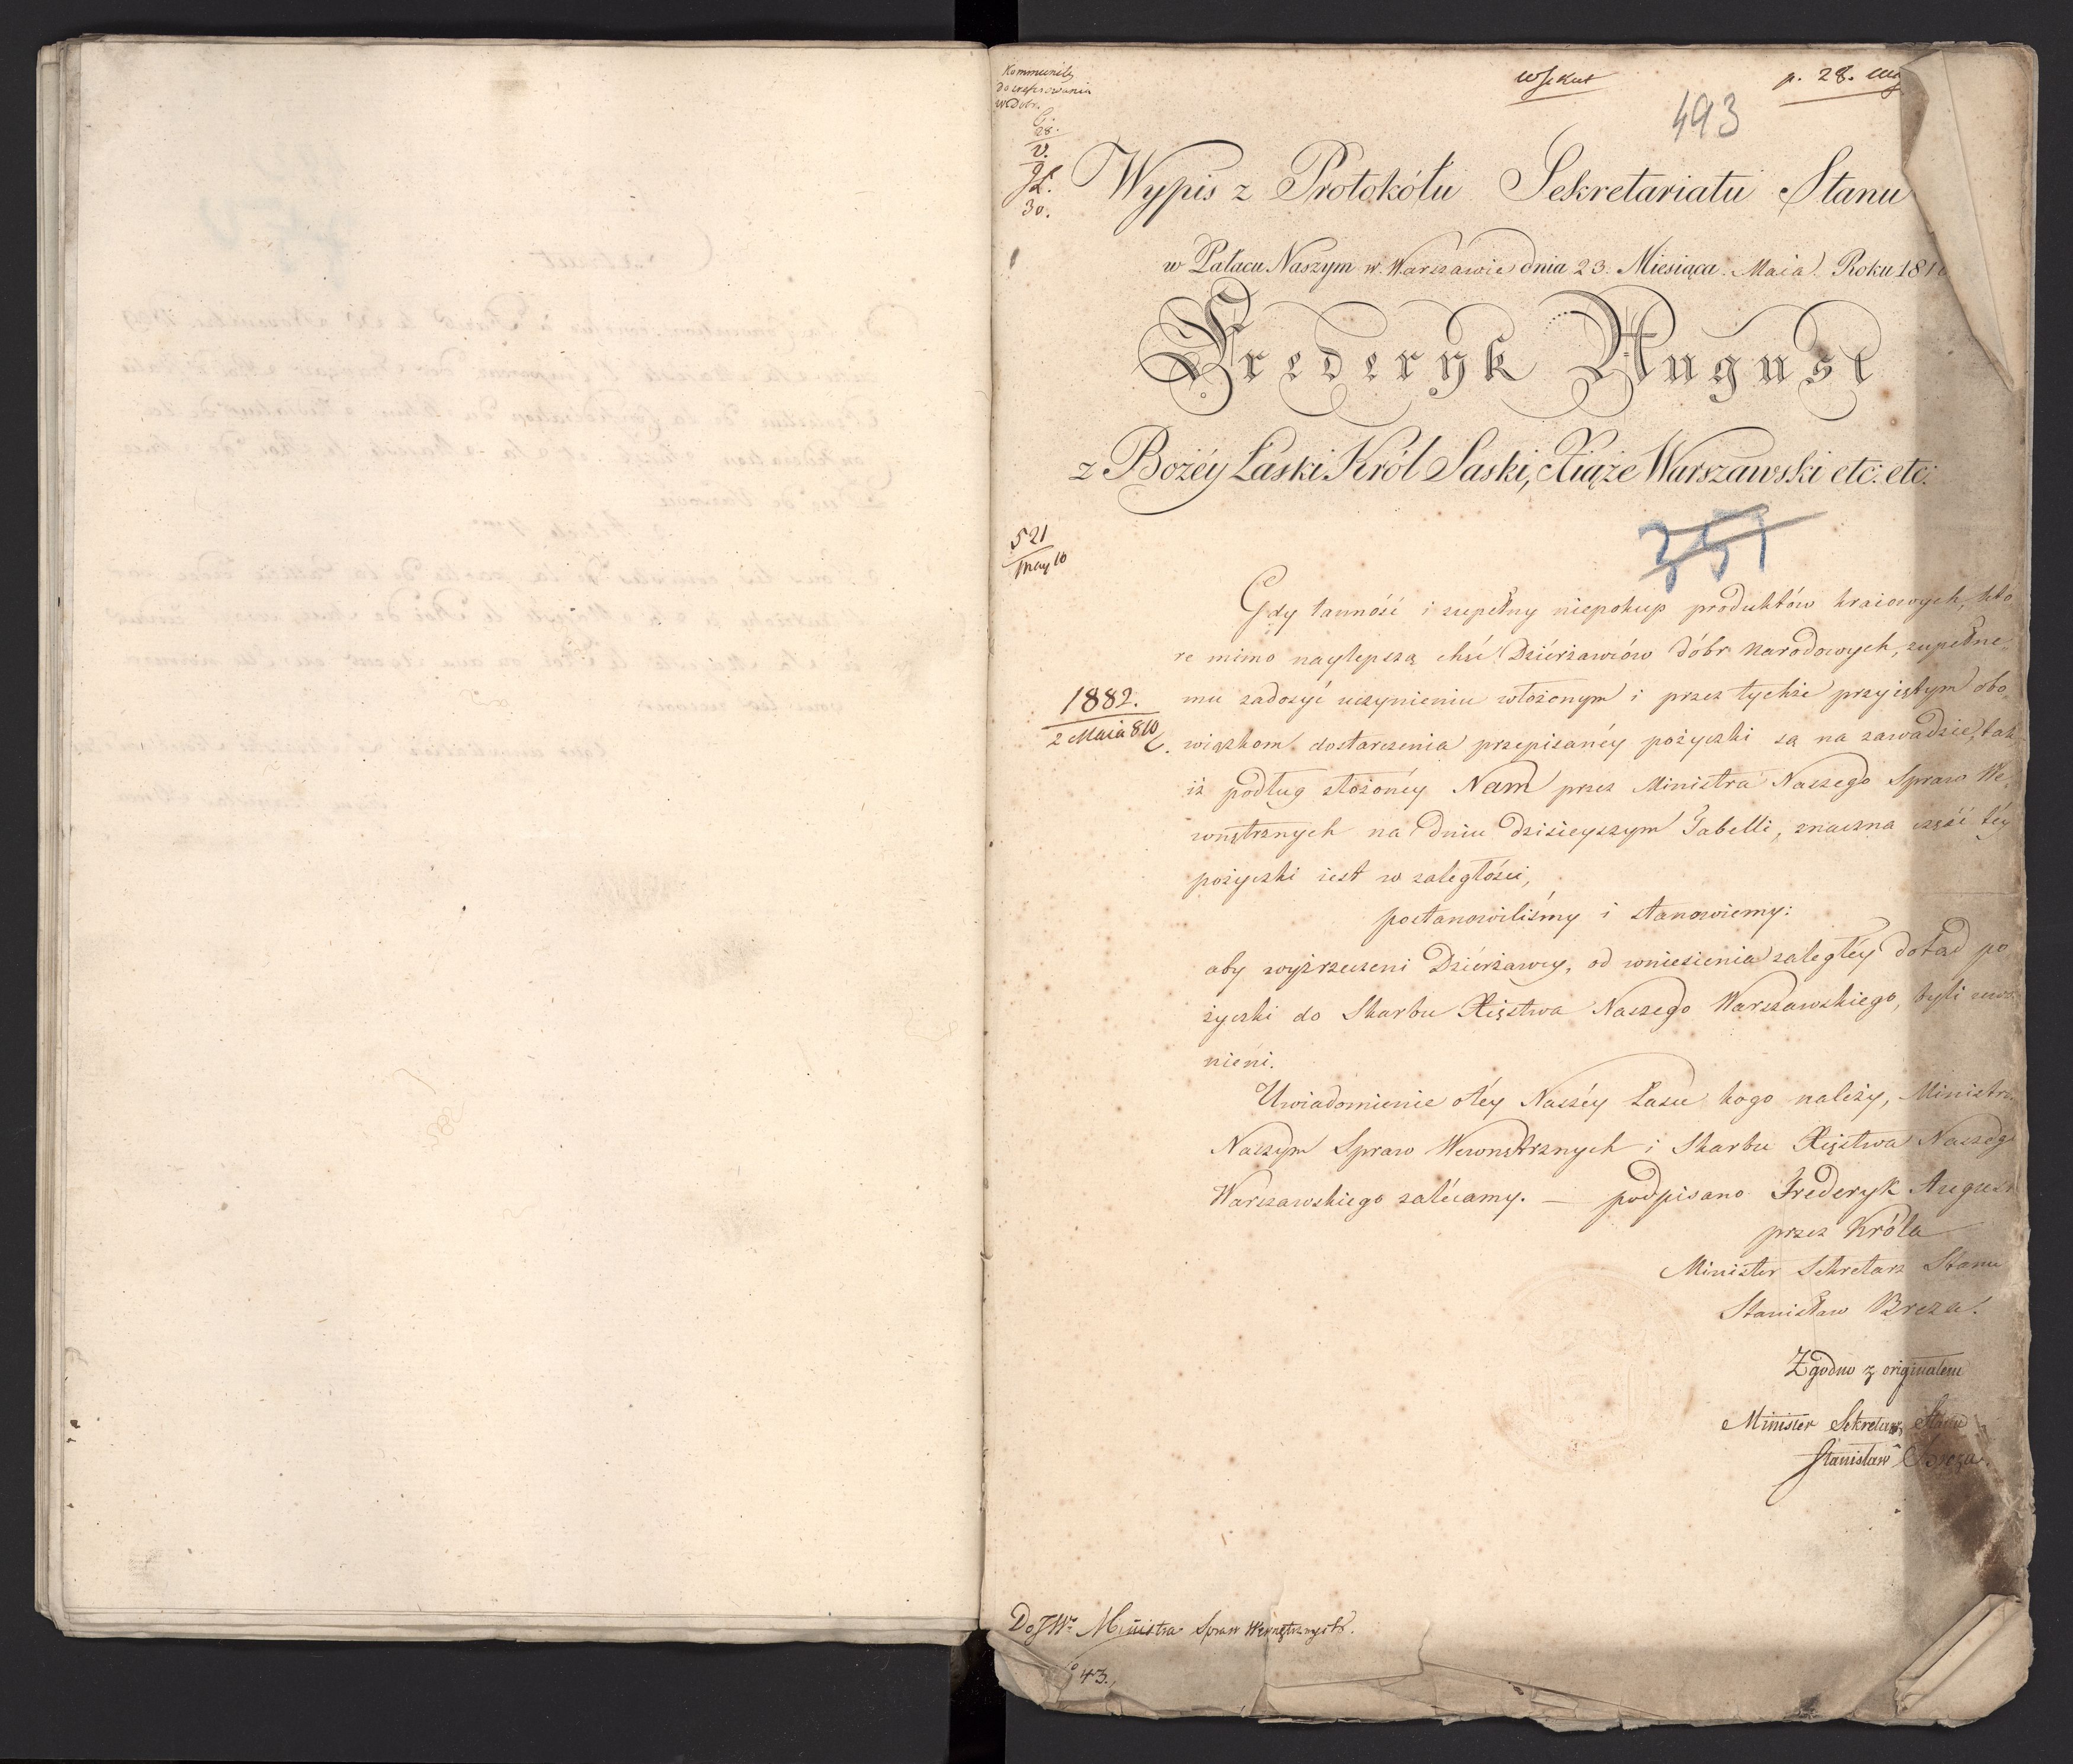 p. 28.
493
Wypis z Protokółu Sekretariatu Stanu
w Pałacu Naszym w Warszawie dnia 23. Miesiąca Maia Roku 181
Frederyk August
z Bożéy Łaski Król Saski, Xiąże Warszawski etc: etc:
28.
V.
30.
521
May 10
351
Gdy tanność i zupełny niepokup produktów kraiowych, któ
re mimo naylepszą chęć Dzierżawców dóbr Narodowych, zupełne
mu zadosyć uczynieniu włożonym i przez tychże przyiętym obo
1882.
2 Maia 810
wiązkom dostarczenia przepisanéy pożyczki są na zawadzie, tak
iż podług złożonéy Nam przez Ministra Naszego Spraw We
wnętrznych na dniu dzisieyszym Tabelli, znaczna część téy
pożyczki iest w zaległości,
postanowiliśmy i stanowiemy:
aby wyżrzeczeni Dzierżawcy, od wniesienia zaległéy dotąd po
życzki do Skarbu Xięstwa Naszego Warszawskiego, byli uwol
nieni.
Uwiadomienie o téy Naszéy Łasce kogo należy, Ministro
Naszym Spraw Wewnętrznych i Skarbu Xięstwa Naszego
Warszawskiego zalécamy. — podpisano Frederyk August
przez Króla
Minister Sekretarz Stanu
Stanisław Breza.
Zgodno z originałem
Minister Sekretarz Stanu
Stanisław Breza.
Do JWo Ministra Spraw Wewnętrznych.
43.